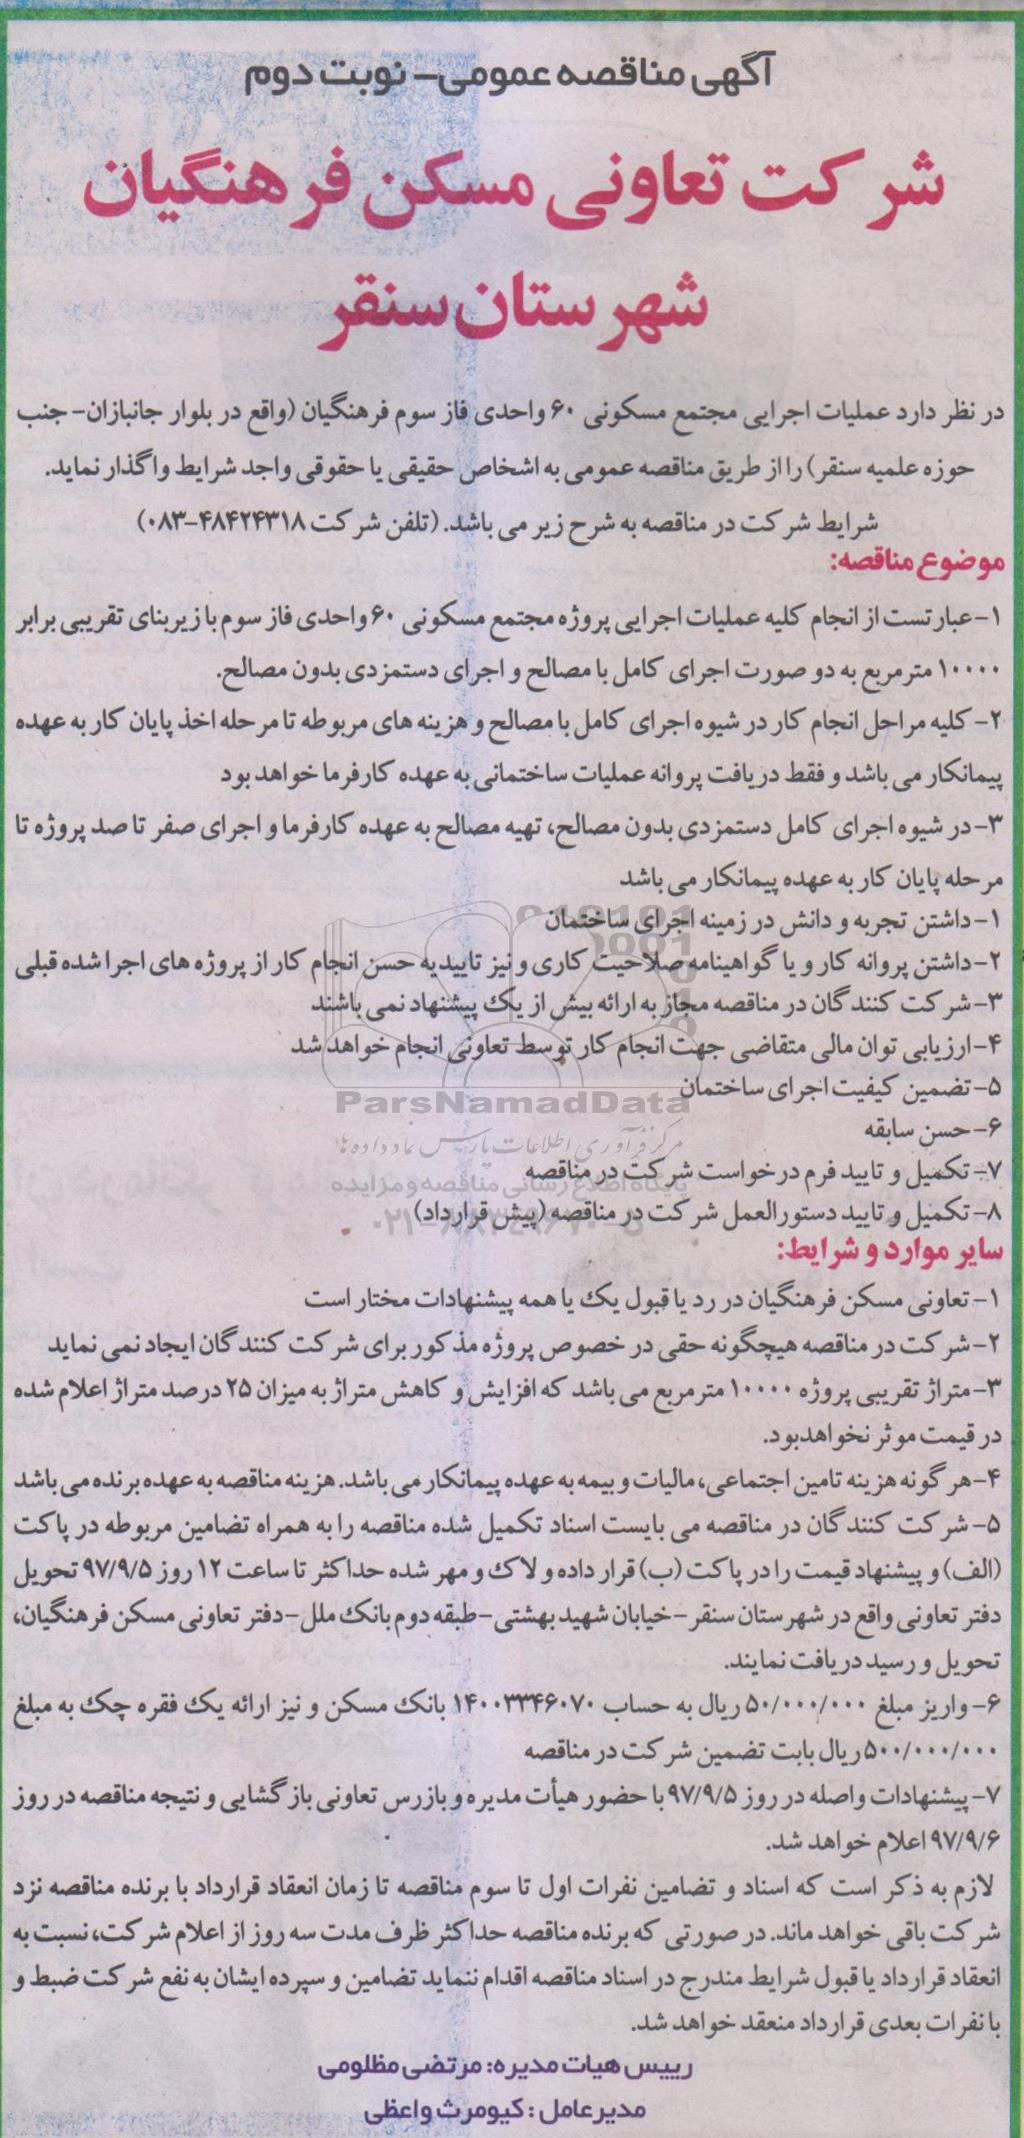 آگهی مناقصه عمومی- نوبت دوم
شرکت تعاونی مسکن فرهنگیان
شهرستان سنقر
در نظر دارد عملیات اجرایی مجتمع مسکونی ۶۰ واحدی فاز سوم فرهنگیان (واقع در بلوار جانبازان- جنب
حوزه علمیه سنقر) را از طریق مناقصه عمومی به اشخاص حقیقی یا حقوقی واجد شرایط واگذار نماید.
شرایط شرکت در مناقصه به شرح زیر می باشد. (تلفن شرکت ۴۸۴۲۴۳۱۸-۰۸۳)
موضوع مناقصه:
۱- عبارتست از انجام کلیه عملیات اجرایی پروژه مجتمع مسکونی ۶۰ واحدی فاز سوم با زیربنای تقریبی برابر
۱۰۰۰۰ مترمربع به دو صورت اجرای کامل با مصالح و اجرای دستمزدی بدون مصالح.
۲- کلیه مراحل انجام کار در شیوه اجرای کامل با مصالح و هزینه های مربوطه تا مرحله اخذ پایان کار به عهده
پیمانکار می باشد و فقط دریافت پروانه عملیات ساختمانی به عهده کارفرما خواهد بود
۳- در شیوه اجرای کامل دستمزدی بدون مصالح، تهیه مصالح به عهده کارفرما و اجرای صفر تا صد پروژه تا
مرحله پایان کار به عهده پیمانکار می باشد
۱- داشتن تجربه و دانش در زمینه اجرای ساختمان
۲- داشتن پروانه کار و یا گواهینامه صلاحیت کاری و نیز تاییدیه حسن انجام کار از پروژه های اجرا شده قبلی
۳- شرکت کنندگان در مناقصه مجاز به ارائه بیش از یک پیشنهاد نمی باشند
۴- ارزیابی توان مالی متقاضی جهت انجام کار توسط تعاونی انجام خواهد شد
۵- تضمین کیفیت اجرای ساختمان
ParsNamadData
۶- حسن سابقه
مرکز فرآوری اطلاعات پارس نماد داده ها
۷- تکمیل و تایید فرم درخواست شرکت در مناقصه
پایگاه اطلاع رسانی مناقصه و مزایده
۸- تکمیل و تایید دستورالعمل شرکت در مناقصه (پیش قرارداد)
۰۲۱-۸۸۳۴۹۶۷۰-۵
سایر موارد و شرایط:
۱- تعاونی مسکن فرهنگیان در رد یا قبول یک یا همه پیشنهادات مختار است
۲- شرکت در مناقصه هیچگونه حقی در خصوص پروژه مذکور برای شرکت کنندگان ایجاد نمی نماید
۳- متراژ تقریبی پروژه ۱۰۰۰۰ مترمربع می باشد که افزایش و کاهش متراژ به میزان ۲۵ درصد متراژ اعلام شده
در قیمت موثر نخواهد بود.
۴- هرگونه هزینه تامین اجتماعی، مالیات و بیمه به عهده پیمانکار می باشد. هزینه مناقصه به عهده برنده می باشد
۵- شرکت کنندگان در مناقصه می بایست اسناد تکمیل شده مناقصه را به همراه تضامین مربوطه در پاکت
(الف) و پیشنهاد قیمت را در پاکت (ب) قرار داده و لاک و مهر شده حداکثر تا ساعت ۱۲ روز ۹۷/۹/۵ تحویل
دفتر تعاونی واقع در شهرستان سنقر- خیابان شهید بهشتی- طبقه دوم بانک ملل- دفتر تعاونی مسکن فرهنگیان،
تحویل و رسید دریافت نمایند.
۶- واریز مبلغ ۵۰/۰۰۰/۰۰۰ ریال به حساب ۱۴۰۰۳۳۴۶۰۷۰ بانک مسکن و نیز ارائه یک فقره چک به مبلغ
۵۰۰/۰۰۰/۰۰۰ ریال بابت تضمین شرکت در مناقصه
۷- پیشنهادات واصله در روز ۹۷/۹/۵ با حضور هیأت مدیره و بازرس تعاونی بازگشایی و نتیجه مناقصه در روز
۹۷/۹/۶ اعلام خواهد شد.
لازم به ذکر است که اسناد و تضامین نفرات اول تا سوم مناقصه تا زمان انعقاد قرارداد با برنده مناقصه نزد
شرکت باقی خواهد ماند. در صورتی که برنده مناقصه حداکثر ظرف مدت سه روز از اعلام شرکت، نسبت به
انعقاد قرارداد یا قبول شرایط مندرج در اسناد مناقصه اقدام ننماید تضامین و سپرده ایشان به نفع شرکت ضبط و
با نفرات بعدی قرارداد منعقد خواهد شد.
رییس هیات مدیره: مرتضی مظلومی
مدیرعامل : کیومرث واعظی